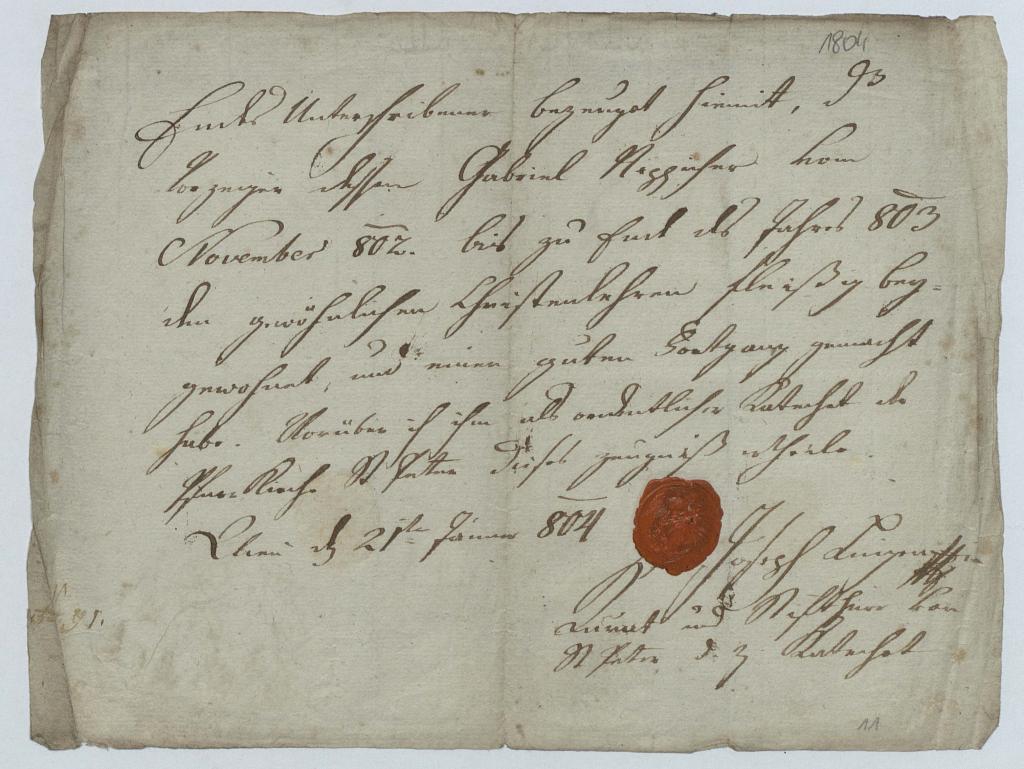 1804
Endes Unterschribener bezeuget hiemit, ds
Vorzeiger dessen Gabriel vom
November 802. bis zu End des Jahres 803
den gewöhnlichen Christenlehren fleißig bey-
gewohnet, und einen guten Fortgang gemacht
habe. Worüber ich ihm als ordentlicher Katechet der
Pfarrkirche St Peter dieses zeugniß ertheile.
Wien den 21ten Jäner 804
Joseph
Curat und Stiftherr von
St Peter d. z Katechet
11